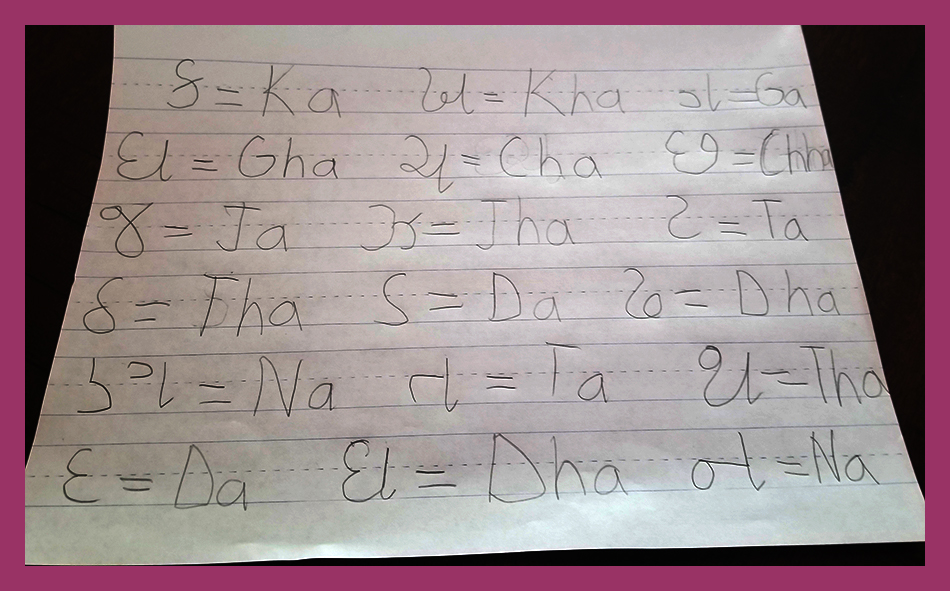 ક = Ka ખ = Kha ગ = Ga
ઘ = Gha ચ = Cha છ = Chha
જ = Ja ઝ = Jha ટ = Ta
ઠ = Tha ડ = Da ઢ = Dha
ણ = Na ત = Ta થ = Tha
દ = Da ધ = Dha ન = Na